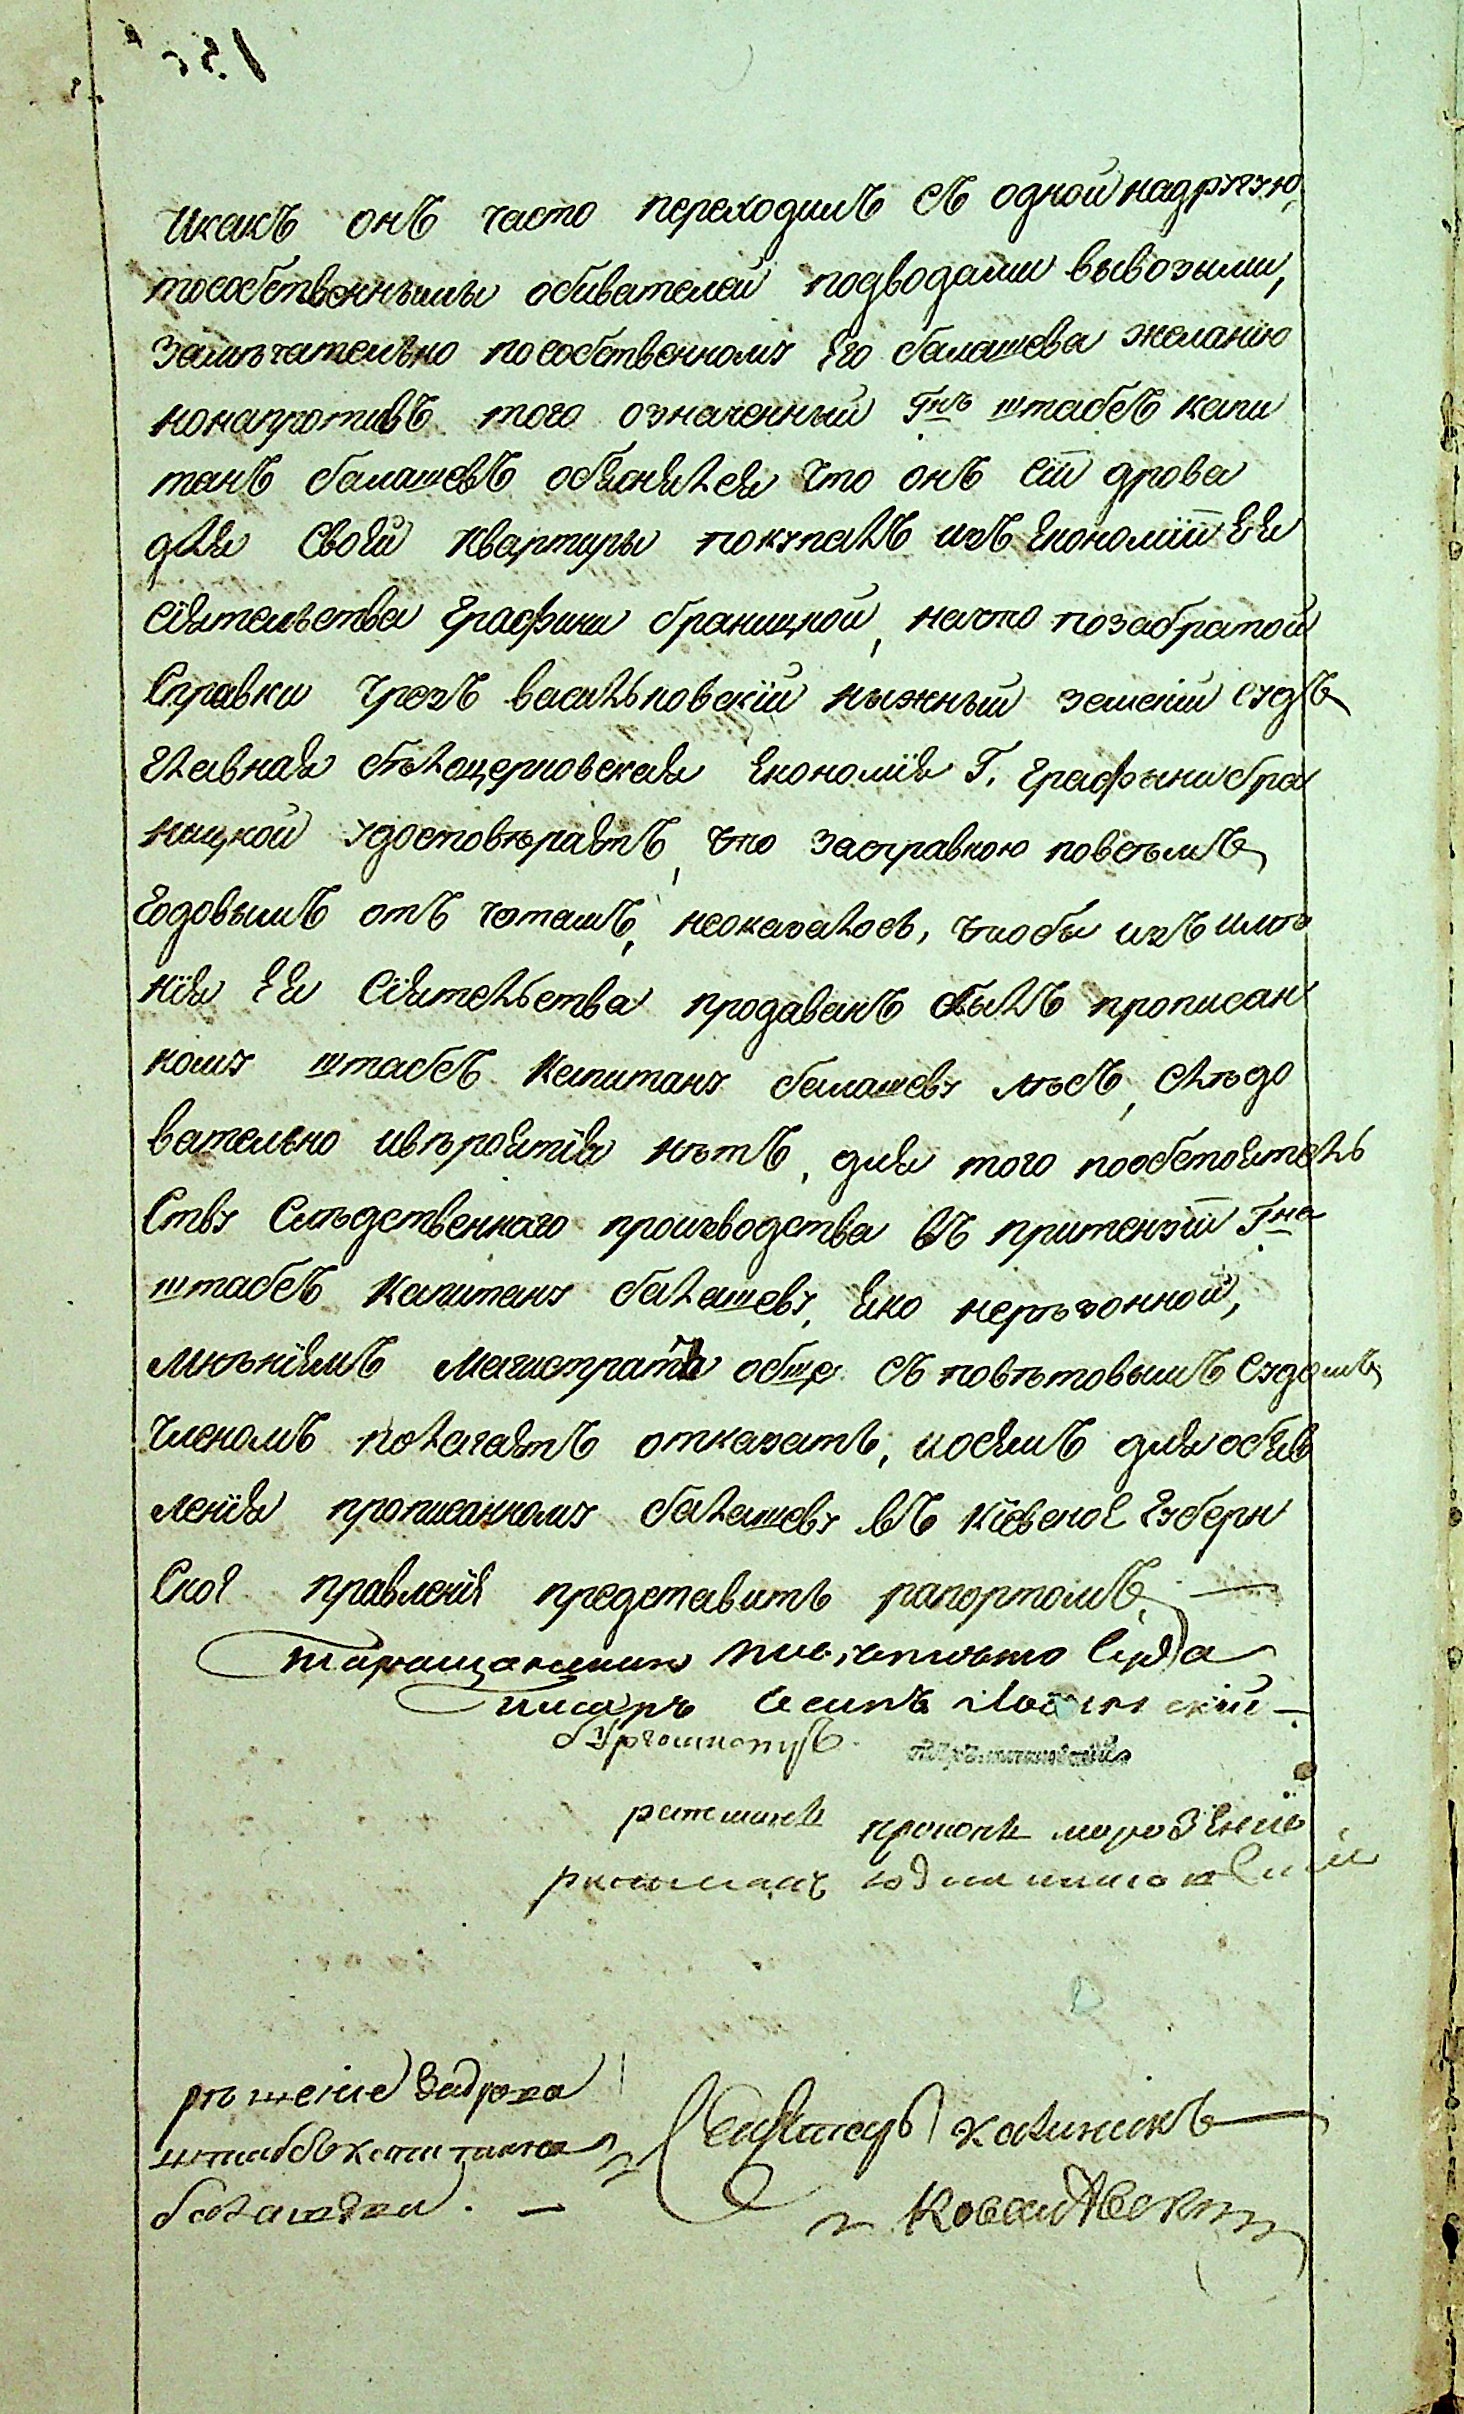 икакъ онъ часто переходилъ съ одной надругую,
тособственными обивателей подводами вывозыми,
замѣчательно пособственному Его балашева желанію
нонапротивъ того означенный Гнъ штабсъ капи
танъ балашевъ обяснялся что онъ сіи дрова
для своей квартиры покупалъ изъ Економіи Ея
сіятельства Графини браницкой, начто позабратой
справки чрезъ васильковскій ныжный земскій судъ
главная бѣлоцерковская Економія Г. Графыни бра
ницкой удостовѣряетъ, что засправкою повсѣмъ
годовымъ отъ четамъ, неоказалось, чтобы изъ имѣ
нія Ея Сіятельства продаванъ былъ прописан
ному штабсъ капитану балашеву лѣсъ, слѣдо
вательно ивѣроятія нѣтъ, для того пообстоятель
ству слѣдственнаго производства въ притензіи Гна
штабсъ капитану балашеву, яко нерѣзонной,
мнѣніемъ Магистратъ обще съ повѣтовымъ судомъ
членомъ полагаетъ отказать, иосемъ для объяв
ленія прописанному балашеву въ Кіевское Губерн
ское правленіе представить рапортомъ, —
Таращанскаго суда
Писарь Осипъ
бургомистръ
ратманъ прокопъ
ратманъ
рѣшеніе задрова
штабсъ капитана
балашева. — Секретарь Калиникъ